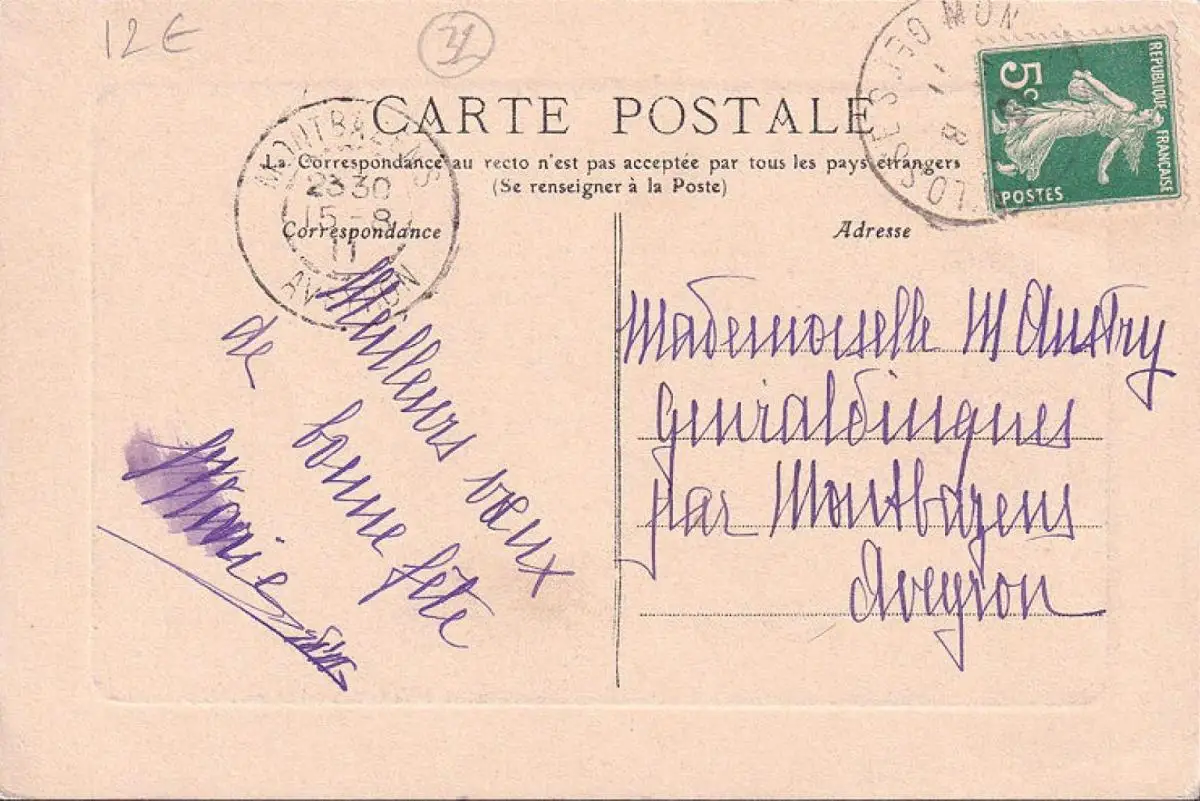 12 €
32
CARTE POSTALE
La Correspondance au recto n'est pas acceptée par tous les pays étrangers
(Se renseigner à la Poste)
Correspondance
Adresse
MONTBAZENS
23 30
15 - 8
11
AVEYRON
5c
RÉPUBLIQUE FRANÇAISE
POSTES
Meilleurs vœux
de bonne fête
Marie
Mademoiselle M Austry
par Montbazens
Aveyron